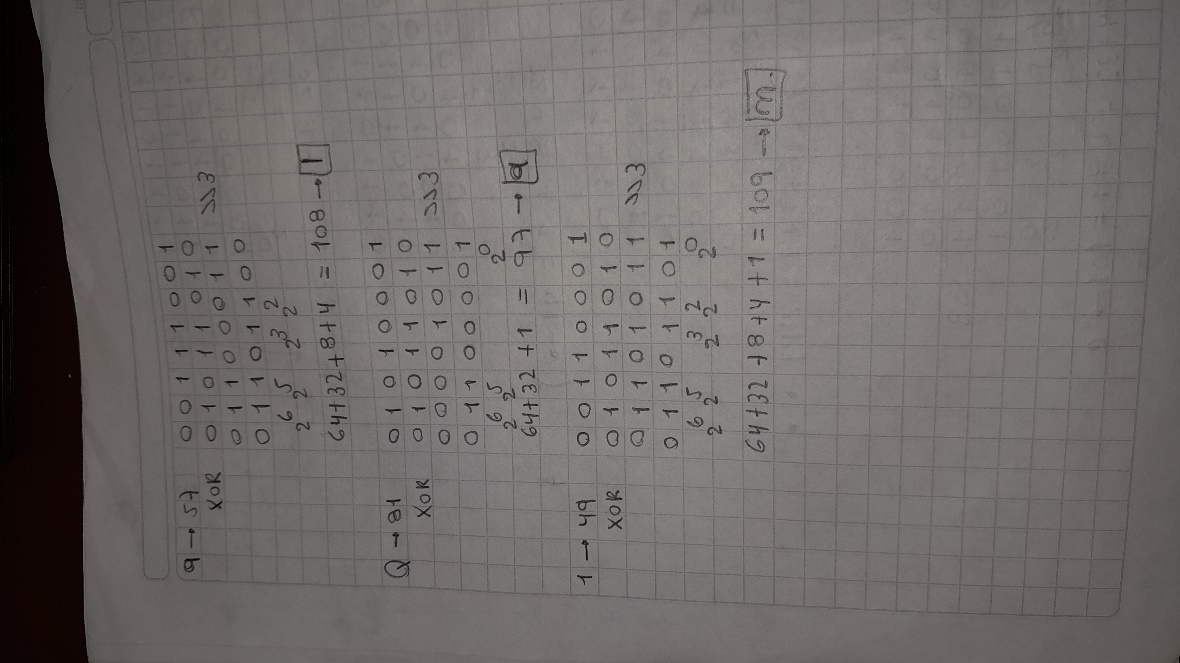 9 → 57 0 0 1 1 1 0 0 1
XOR 0 1 0 1 1 0 1 0
0 1 1 0 0 0 1 1 >>3
0 1 1 0 1 1 0 0
2⁶ 2⁵ 2³ 2²
64+32+8+4 = 108 → l
Q → 81 0 1 0 1 0 0 0 1
XOR 0 1 0 1 1 0 1 0
0 0 0 0 1 0 1 1 >>3
0 1 1 0 0 0 0 1
2⁶ 2⁵ 2⁰
64+32+1 = 97 → a
1 → 49 0 0 1 1 0 0 0 1
XOR 0 1 0 1 1 0 1 0
0 1 1 0 1 0 1 1 >>3
0 1 1 0 1 1 0 1
2⁶ 2⁵ 2³ 2² 2⁰
64+32+8+4+1 = 109 → m.